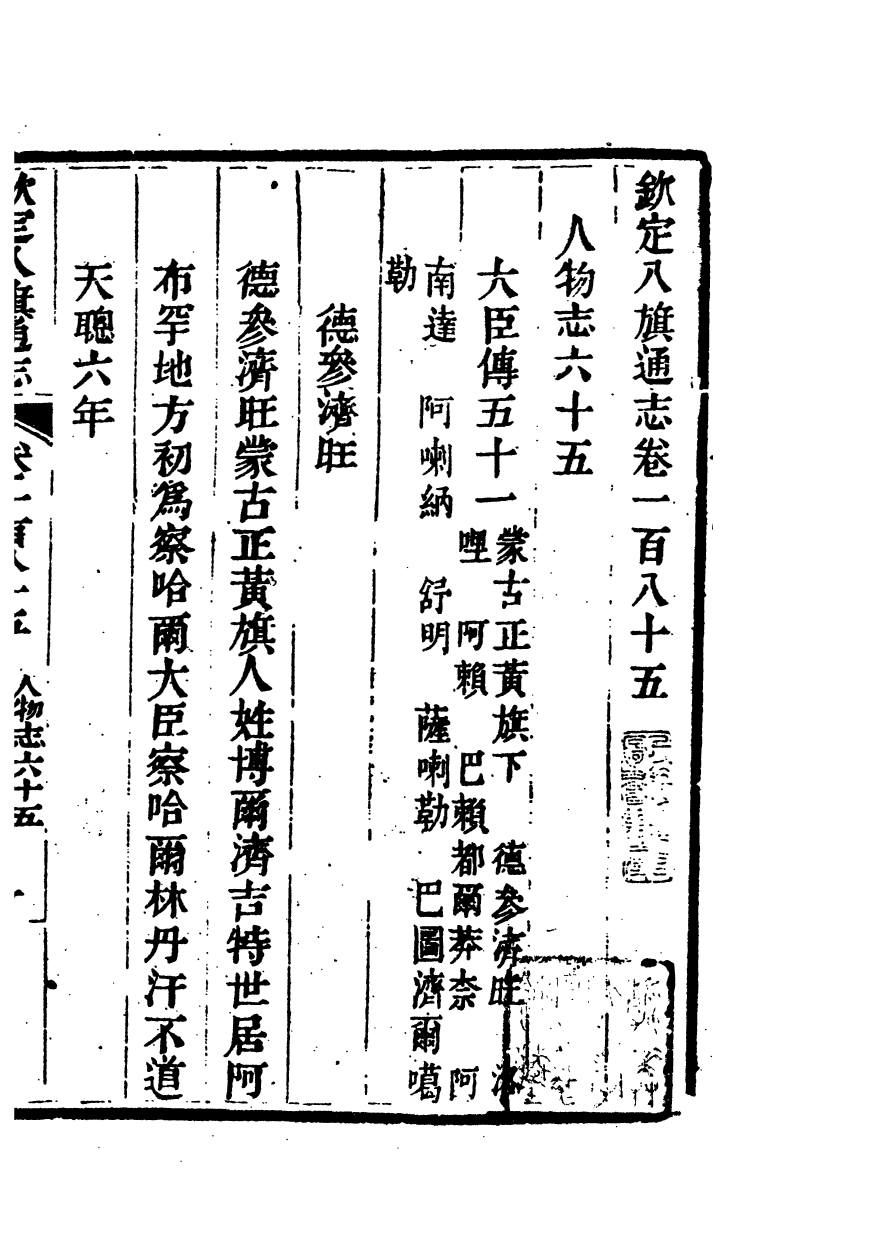 欽定八旗通志卷一百八十五
人物志六十五
大臣傳五十一
蒙古正黃旗下　德參濟旺　洛
哩　阿賴　巴賴都爾莽奈　阿
南達　阿喇納　舒明　薩喇勒　巴圖濟爾噶
勒
德參濟旺
德參濟旺蒙古正黃旗人姓博爾濟吉特世居阿
布罕地方初爲察哈爾大臣察哈爾林丹汗不道
天聰六年
欽定八旗通志　卷一百八十五　人物志六十五